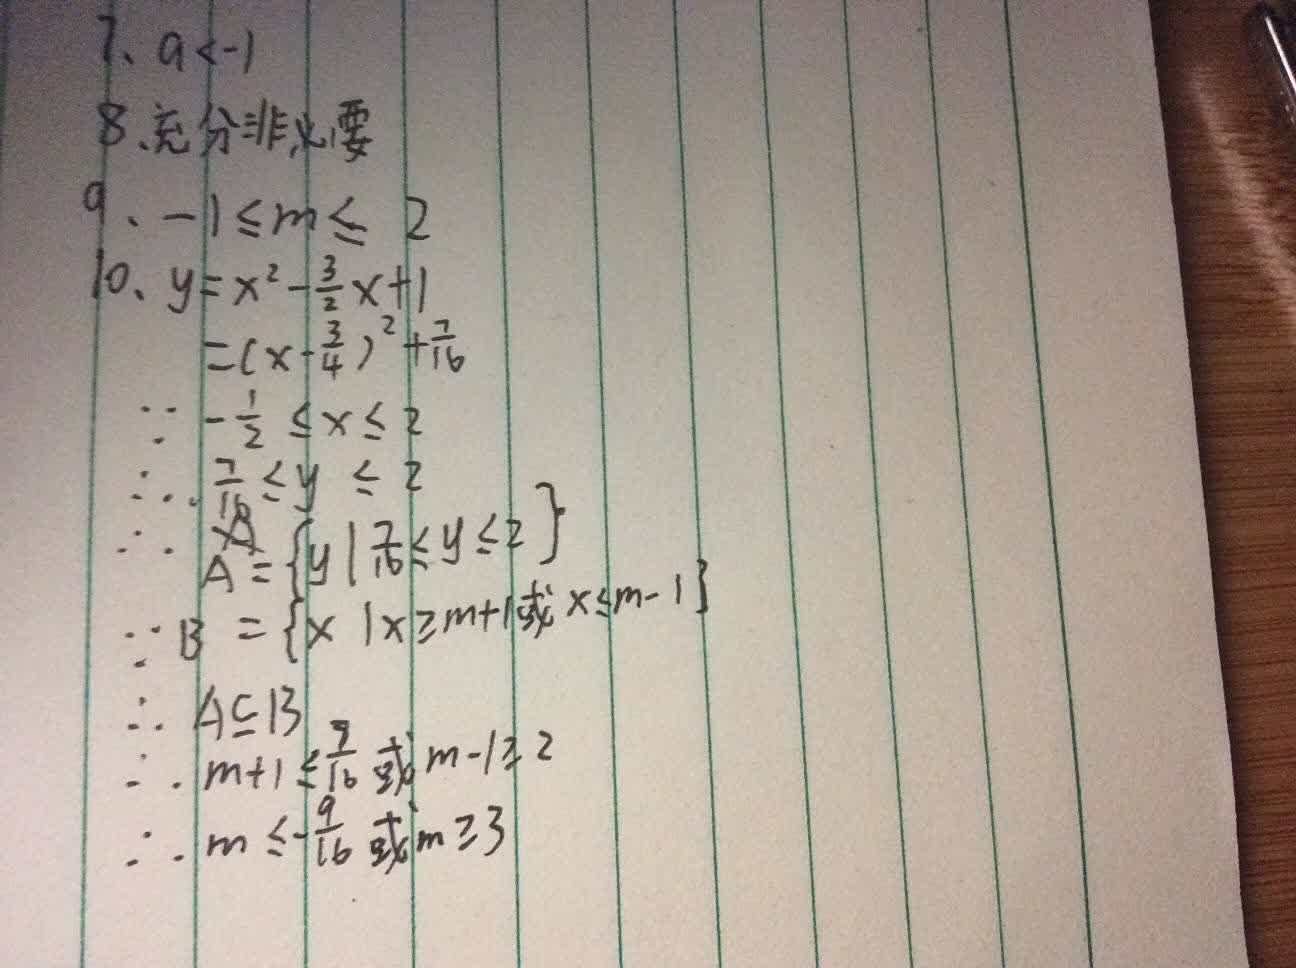 7、a<-1
8、充分非必要
9、-1≤m≤ 2
10、y=x²-3/2x+1
=(x-3/4)²+7/16
∵ -1/2 ≤x≤ 2
∴ 7/16 ≤y ≤ 2
∴ A={y|7/16≤y≤2}
∵B ={x|x≥m+1或x≤m-1}
∴ A⊆B
∴ m+1≤7/16 或 m-1≥2
∴ m≤-9/16 或m≥3